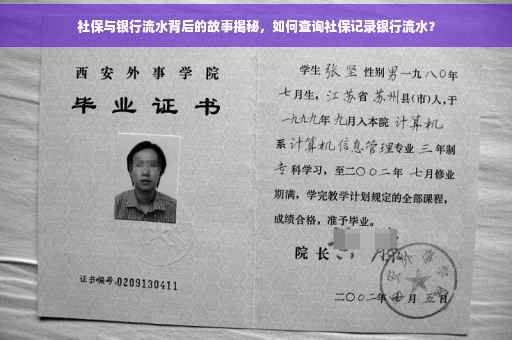 社保与银行流水背后的故事揭秘，如何查询社保记录银行流水？
西安外事学院
毕业证书
证书编号:0209130411
学生 张坚 性别 男 一九八〇年
七月生，江苏省 苏州 县(市)人，于
一九九九年 九月入本院 计算机
系 计算机信息管理 专业 三 年制
专 科学习，至二〇〇二年 七月修业
期满，学完教学计划规定的全部课程，
成绩合格，准予毕业。
院长
二〇〇二年 月 五日